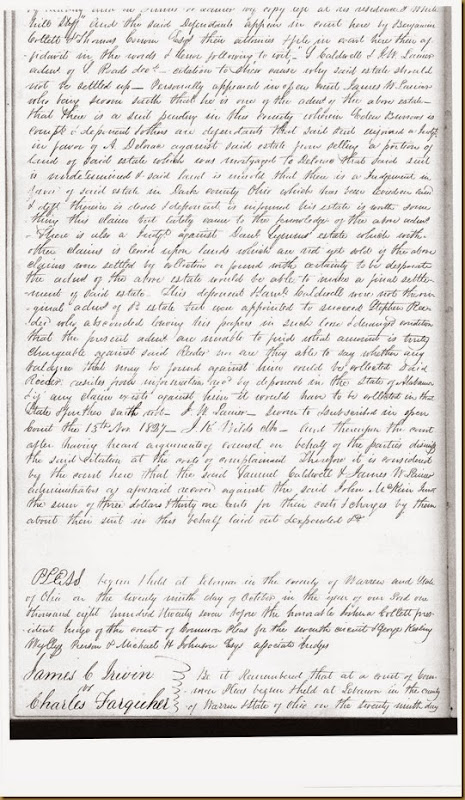 and the said defendants appear in court here by Benjamin
Collett & Thomas Corwin Esqs their attornies & file in court here their af-
fidavit in the words & figures following to wit, J Caldwell & J. W. Lanier
citation to shew cause why said estate should
not be settled up — Personally appeared in open court James W. Lanier
who being sworn saith that he is one of the admrs of the above estate
that there is a suit pending in this county wherein
compt & deponent & others are defendants that said suit enjoined a
in favor of A Delorac against said estate from selling a portion of
Land of said estate which was mortgaged to Delorac that said suit
is undetermined & said land is unsold that there is a Judgement in
favor of said estate in Dark county Ohio which has been
& deft therein is dead & deponent is informed his estate is worth some
thing this claim but lately came to the knowledge of the above admrs
There is also a against estate which with
other claims is levied upon lands which are not yet sold if the above
claims were settled by collection or found with certainty to be desperate
the admrs of the above estate would be able to make a final settle-
ment of said estate. This deponent & Saml Caldwell were not the ori-
ginal admrs of sd estate but were appointed to succeed Stephen Ree-
der who absconded leaving his papers in such loose & deranged condition
that the present admrs are unable to find what amount is truly
chargeable against said Reeder nor are they able to say whether any
balance that may be found against him could be collected said
Reeder resides from information recd by deponent in the State of Alabama
& if any claim exists against him it would have to be collected in that
State further saith not — J. W. Lanier — sworn to & subscribed in open
Court the 15th Nov 1827 — J. K. Wilds clk — And thereupon the court
after having heard arguments of counsel on behalf of the parties dismiss
the said citation at the costs of complainant Therefore it is considered
by the court here that the said Samuel Caldwell & James W. Lanier
administrators as aforesaid recover against the said John McKim
the sum of three dollars & thirty one cents for their costs & charges by them
about their suit in this behalf laid out & expended &c
PLEAS begun & held at Lebanon in the county of Warren and State
of Ohio on the twenty ninth day of October in the year of our Lord one
thousand eight hundred & twenty seven before the honorable Joshua Collett pres-
ident judge of the court of Common Pleas for the seventh circuit & George Kesling
Wyllys Pierson & Michael H Johnson Esqs associate judges
James C Irwin
vs
Charles Farquher
Be it Remembered that at a court of Com-
mon Pleas begun & held at Lebanon in the county
of Warren & State of Ohio on the twenty ninth day